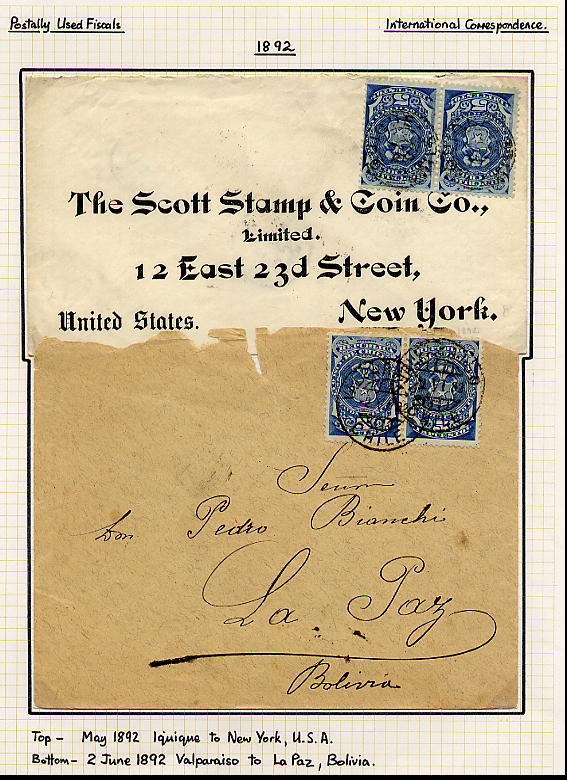 Postally Used Fiscals
International Correspondence.
1892
The Scott Stamp & Coin Co.,
Limited.
12 East 23d Street,
New York.
United States.
Don Pedro Bianchi
La Paz
Bolivia
Top - May 1892 Iquique to New York, U.S.A.
Bottom - 2 June 1892 Valparaiso to La Paz, Bolivia.